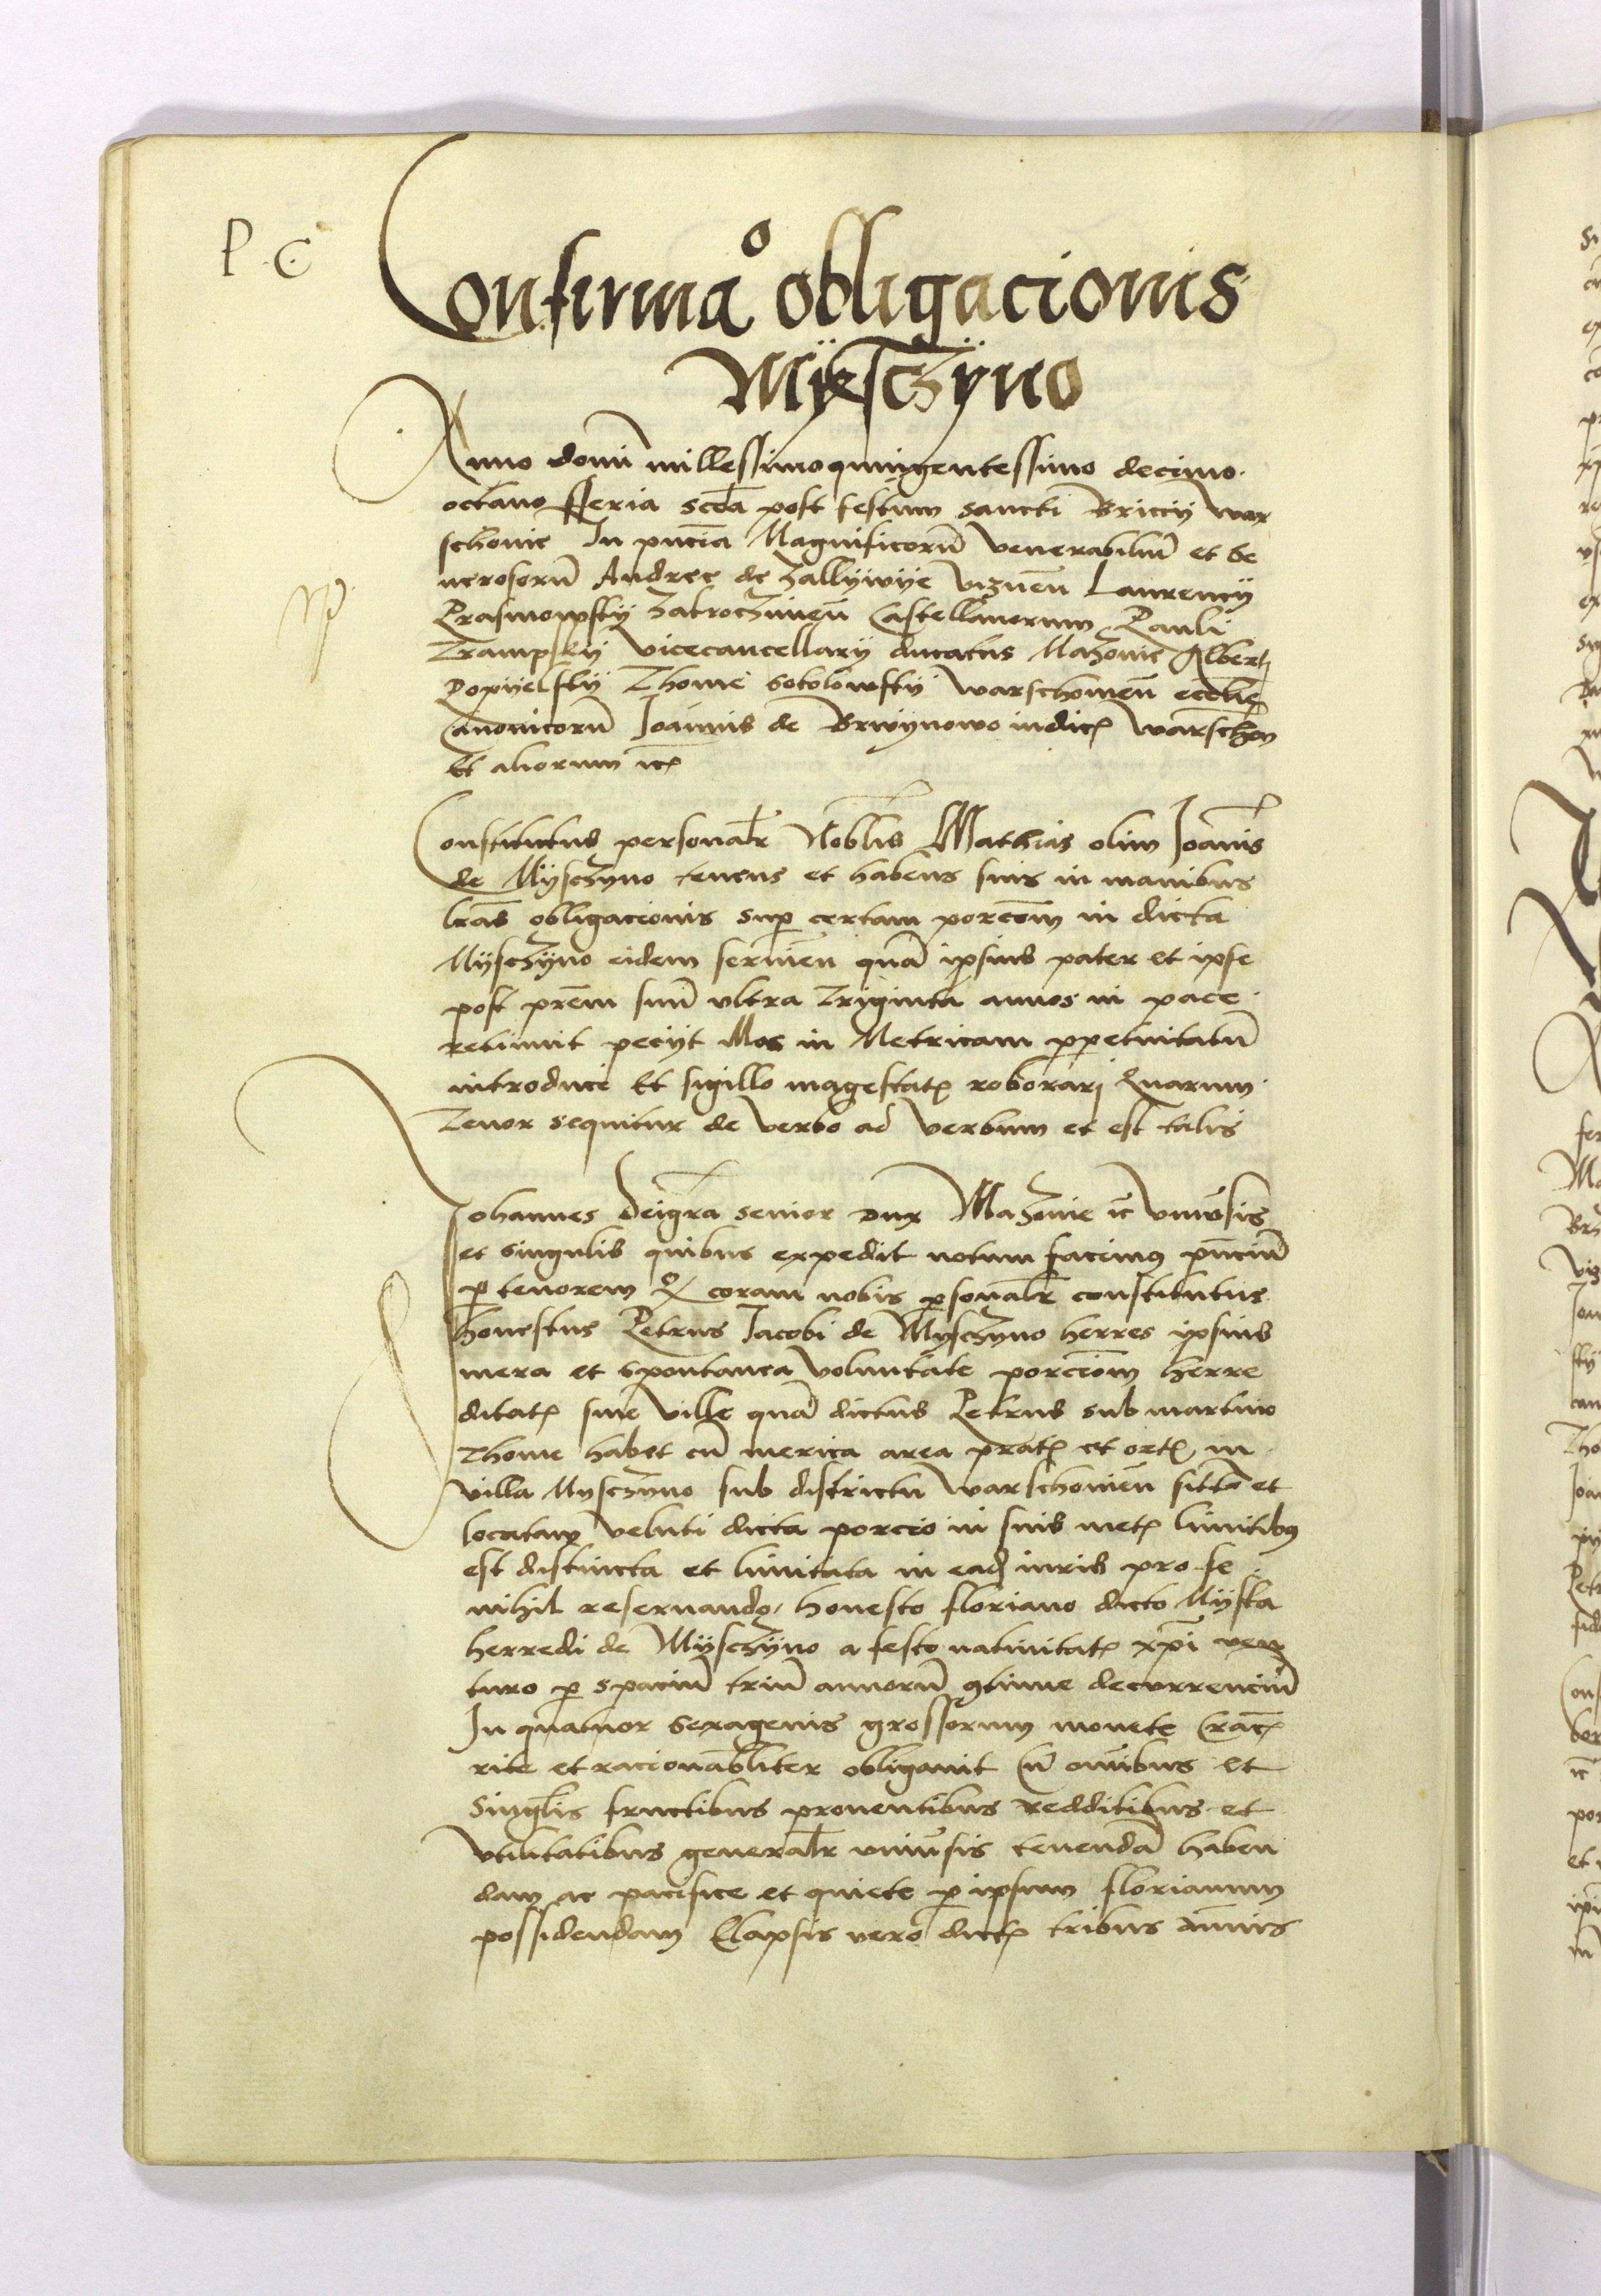 P. C
Confirmaᵒ obligacionis
Mÿksczÿno
Anno domī millessimoquingentessimo decimo
octauo fferia scda post festum sancti Briccij War
schouie In pn̄cia Magnificorū venerabiliū et Ge
nerosorū Andree de Zallÿwÿe Viznen̄ Laurencij
Prasmowskÿ Zakroczimen̄ Castellanorum Pauli
vicecancellarij ducatus Mazouie Albert
Popÿelskÿ Thome Sokolowskÿ Warschouien̄ eccl̄ie
Canonicorū Joannis de Brwÿnowo iudic Warschen
Et aliorum
Constitutus personal̄r Nobl̄is Mathias olim Joannis
de Mÿsczÿno tenens et habens suis in manibus
l̄ras obligacionis sup certam porcōm in dicta
Mÿsczÿno eidem seruien̄ quā ipsius pater et ipse
post prēm suū vltra Triginta annos in pace
retinuit peciit illas in Metricam ppetuitatū
introduci Et sigillo magestat roborari Quarum
Tenor sequitur de verbo ad verbum et est talis
Johannes deigrā senior dux Mazouie ic̄ vniūsis
et singulis quibus expedit notum facimus pn̄ciū
p tenorem coram nobis psonal̄r constitutus
honestus Petrus Jacobi de Mÿsczÿno herres ipsius
mera et spontanea voluntate porciom herre
ditat sue ville quā dictus Petrus sub martino
Thome habet cū merica area prat et ort in
villa Mÿsczÿno sub districtu Warschouien̄ sitta et
locatam veluti dicta porcio in suis met limitibus
est distincta et limitata in ead iuris pro se
nihil reseruando honesto floriano dicto Mÿska
herredi de Mÿsczÿno a festo natiuitat xp̄i ven
turo p spaciū triū annorū 9tinue decurrenciū
In quatuor sexagenis grossorum monete
rite et racionabl̄iter obligauit cū oīnibus et
singl̄is fructibus prouentibus redditibus et
vtilitatibus general̄r vniūsis tenendā haben
dam ac pacifice et quiete p ipsum florianum
possidendam Elapsis vero dict tribus annis